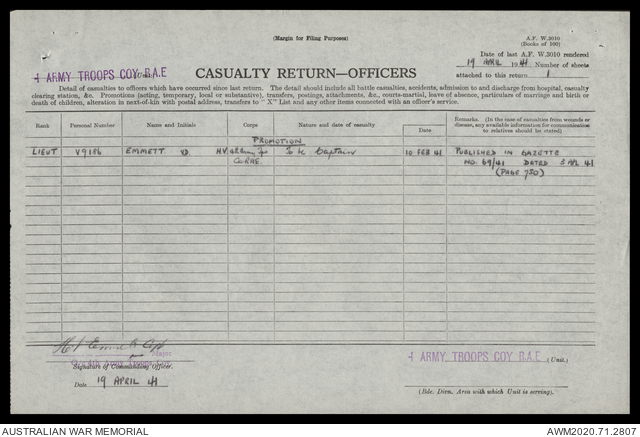 (Margin for Filing Purposes)
A.F. W.3010
(Books of 100)
Date of last A.F. W.3010 rendered
19 APRIL 1941 Number of sheets
attached to this return 1
4 ARMY TROOPS COY R.A.E (Unit)
CASUALTY RETURN—OFFICERS
Detail of casualties to officers which have occurred since last return. The detail should include all battle casualties, accidents, admission to and discharge from hospital, casualty
clearing station, &c. Promotions (acting, temporary, local or substantive), transfers, postings, attachments, &c., courts-martial, leave of absence, particulars of marriage and birth or
death of children, alteration in next-of-kin with postal address, transfers to "X" List and any other items connected with an officer's service.
Rank Personal Number Name and Initials Corps Nature and date of casualty Date Remarks. (In the case of casualties from wounds or disease, any available information for communication to relatives should be stated)
PROMOTION
LIEUT V9186 EMMETT To be Captain 10 FEB 41 PUBLISHED IN GAZETTE
NO. 69/41 DATED 3 APL 41
(PAGE 750)
Major
Signature of Commanding Officer.
Date 19 APRIL 41
4 ARMY TROOPS COY R.A.E (Unit.)
(Bde. Divn. Area with which Unit is serving).
AUSTRALIAN WAR MEMORIAL
AWM2020.71.2807